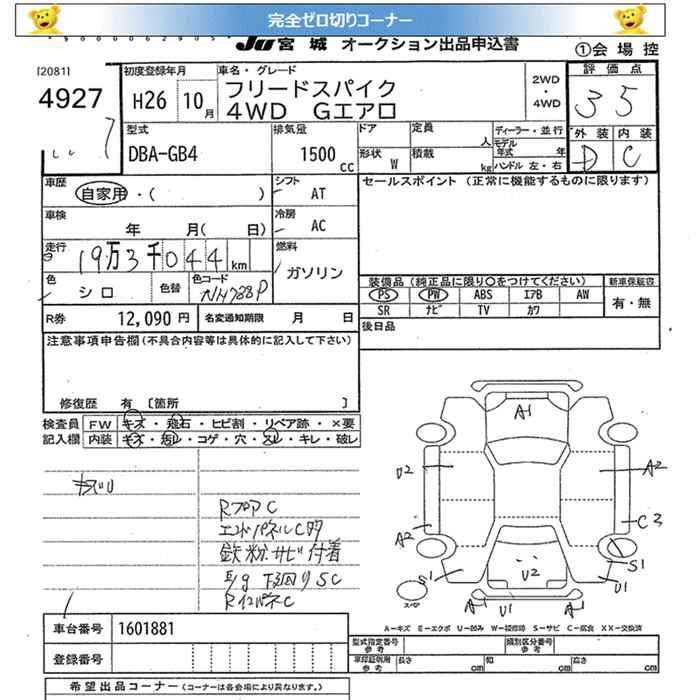 完全ゼロ切りコーナー
JU宮城 オークション出品申込書
①会場控
[2081]
4927
初度登録年月
H26 10月
車名・グレード
フリードスパイク
4WD Gエアロ
2WD
・
4WD
評価点
35
外装 内装
D C
型式
DBA-GB4
排気量
1500cc
ドア 定員 人
形状 W 積載 kg
ディーラー・並行
モデル年式 年
ハンドル 左・右
車歴
自家用・( )
シフト
AT
セールスポイント (正常に機能するものに限ります)
車検
年 月( 日)
冷房
AC
走行
19万3千044km
燃料
ガソリン
色
シロ
色替
色コード
NH788P
装備品 (純正品に限り○をつけてください)
新車保証書
PS PW ABS エアB AW
有・無
SR ナビ TV カワ
R券 12,090円
名変通知期限 月 日
後日品
注意事項申告欄(不具合内容等は具体的に記入して下さい)
修復歴 有 [箇所 ]
検査員記入欄
FW キズ・飛石・ヒビ割・リペア跡・×要
内装 キズ・汚レ・コゲ・穴・スレ・キレ・破レ
RフロアC
エンドパネルC
鉄粉サビ付着
E/g 下回りSC
RインパネC
A1
U2
A2
A2
C3
A2
S1
U2
S1
U1
A1
U1
A1
スペア
A-キズ E-エクボ U-凹み W-補修跡 S-サビ C-腐食 XX-交換済
車台番号 1601881
登録番号
型式指定番号 参考
類別区分番号 参考
車検証記載 参考 長さ cm 幅 cm 高さ cm
希望出品コーナー (コーナーは各会場により異なります。)